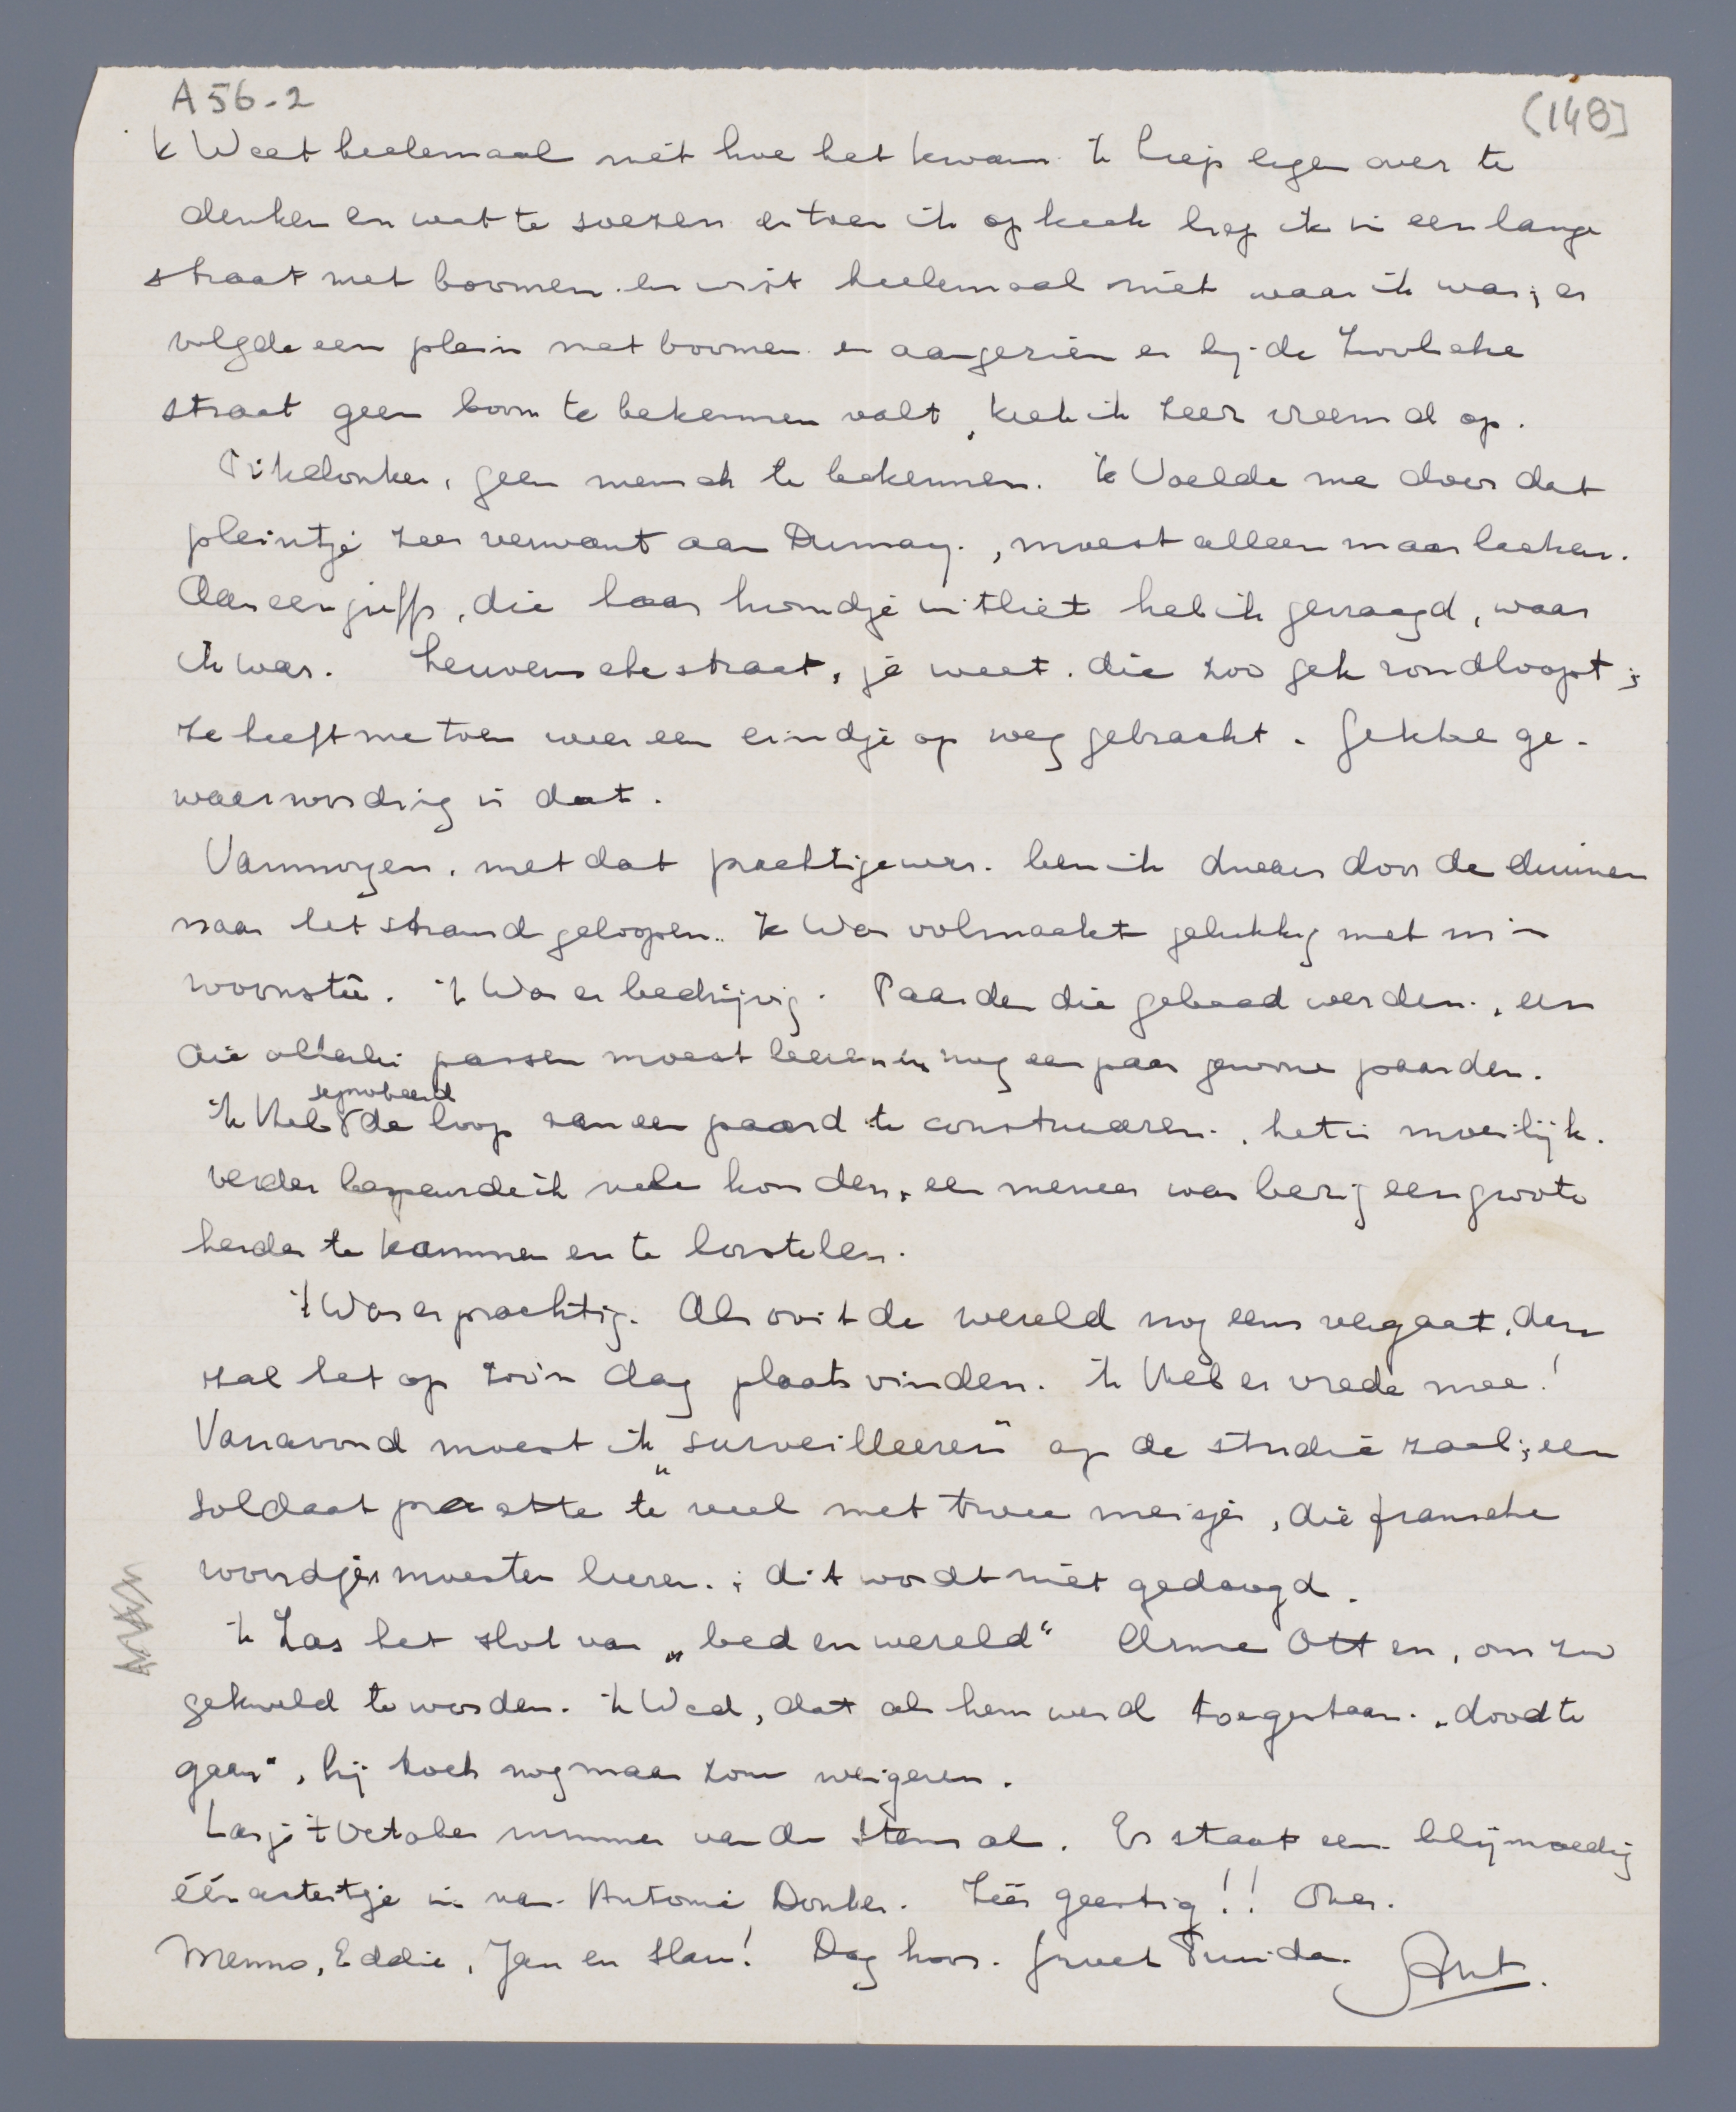 A 56-2
(148)
'k Weet heelemaal niet hoe het kwam. 'k liep ergen over te
denken en wat te soezen en toen ik opkeek liep ik in een lange
straat met boomen. en wist heelemaal niet waar ik was; er
volgde een plein met boomen en aangezien er bij de Zwolsche
straat geen boom te bekennen valt, keek ik zeer vreemd op.
Pikdonker, geen mensch te bekennen. 'k Voelde me door dat
pleintje zeer verwant aan Dumay., moest alleen maar lachen.
Aan een juffr, die haar hondje uitliet heb ik gevraagd, waar
ik was. Leuvenschestraat, je weet. die zoo gek rondloopt;
ze heeft me toen weer een eindje op weg gebracht. Gekke ge-
waarwording is dat.
Vanmorgen. met dat prachtige weer. ben ik dwars door de duinen
naar het strand geloopen.. 'k Was volmaakt gelukkig met m'n
woonsteê. 't Was er bedrijvig. Paarden die gebaad werden., een
die allerlei passen moest leeren en nog een paar gewone paarden.
'k Heb geprobeerd de loop van een paard te construeeren., het is moeilijk.
verder begeurde ik vele honden, een meneer was bezig een groote
herder te kammen en te borstelen.
't Was er prachtig. Als ooit de wereld nog eens vergaat, dan
zal het op zoo'n dag plaats vinden. 'k Heb er vrede mee!
Vanavond moest ik „surveilleeren" op de studiezaal; een
soldaat praatte te veel met twee meisjes, die fransche
woordjes moesten leeren.; dit wordt niet gedoogd.
'k Las het slot van „bed en wereld" Arme Otten, om zoo
gekweld te worden. 'k Wed, dat als hem werd toegestaan. „dood te
gaan", hij toch nog maar zou weigeren.
Las je 't October nummer van de Stem al. Er staat een blijmoedig
éénactertje in van Antonie Donker. Zéér geestig!! Over.
Menno, Eddie, Jan en Slau! Dag hoor. groet Puuida. Ant.